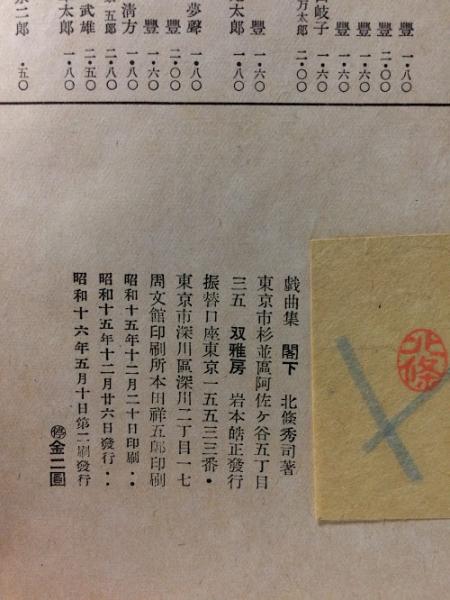 豐 一・八〇
豐 二・〇〇
豐 一・六〇
豐 一・六〇
岐子 一・六〇
万太郎 二・〇〇
豐 一・六〇
太郎 一・八〇
夢聲 一・八〇
豐 二・〇〇
豐 一・六〇
淸方 一・八〇
五郎 一・八〇
武雄 二・五〇
太郎 一・八〇
二郎 ・五〇
戯曲集 閣下 北條秀司著
東京市杉並區阿佐ケ谷五丁目
三五 双雅房 岩本皓正發行
振替口座東京一五五三三番・
東京市深川區深川二丁目一七
周文館印刷所本田祥五郎印刷
昭和十五年十二月二十日印刷・・
昭和十五年十二月廿六日發行・・
昭和十六年五月十日第二刷發行
㊞金二圓
北條